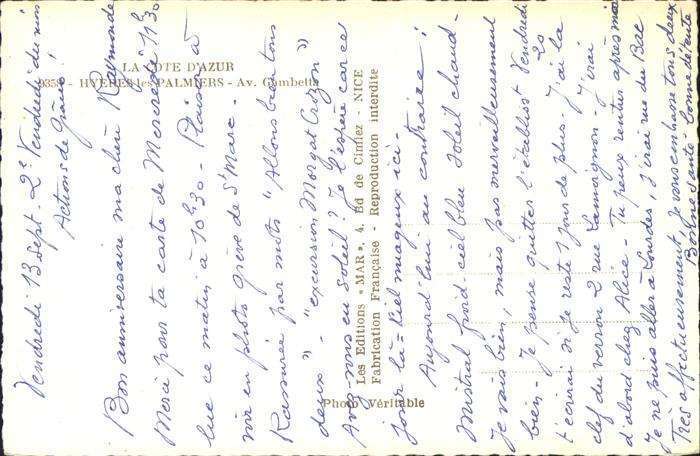 LA COTE D'AZUR
358 - HYERES-les-PALMIERS - Av. Gambetta
Les Editions « MAR », 4, Bd de Cimiez - NICE
Fabrication Française - Reproduction interdite
Photo Véritable
Vendredi 13 Sept. 2e Vendredi du mois
Actions de grâces!
Bon anniversaire ma chère Raymonde
Merci pour ta carte de Mercredi 11h30
lue ce matin à 10h30 - Plaisir à
voir en photo grève de St Marc -
Rassurée par mots "Allons bien tous
deux" - "excursion Morgat Crozon"
Avez-vous eu soleil? Je l'espère car ce
jour là = ciel nuageux ici -
Aujourd'hui au contraire!
mistral froid - ciel bleu soleil chaud -
Je vais bien, mais pas merveilleusement
bien - Je pense quitter l'établist Vendredi 20
t'écrirai si je reste 1 jour de plus - J'ai la
clef du verrou 2 rue Lamoignon - J'irai
d'abord chez Alice - Tu peux rentrer après moi
Je ne puis aller à Lourdes, j'irai rue du Bac
Très affectueusement, Je vous embrasse tous deux
Bonne santé bonne détente